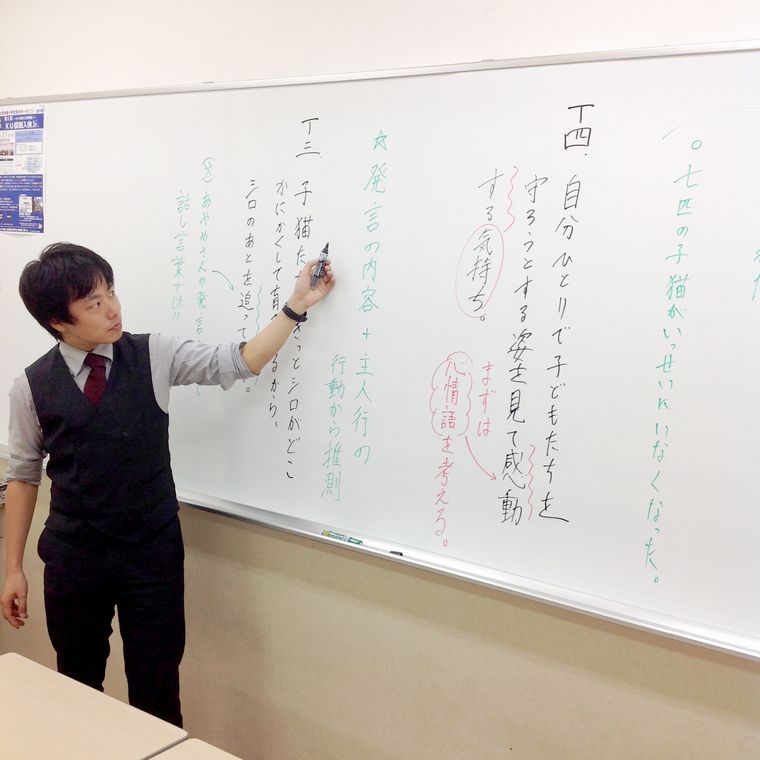 。七匹の子猫がいっせいにいなくなった。
丁四.自分ひとりで子どもたちを
守ろうとする姿を見て感動
する気持ち。
まずは
心情語を考える。
☆発言の内容+主人行の
行動から推測
丁三.子猫た きっとシロがどこ
かにかくして育 るから、
シロのあとを追って 。
あやめさんの発言
話し言葉では!!